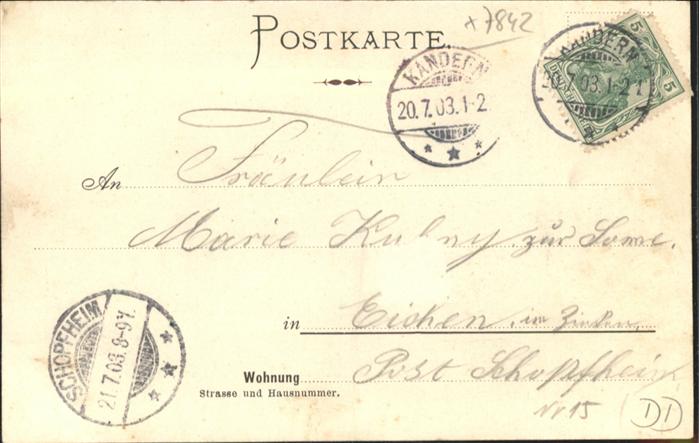 +7842
POSTKARTE.
KANDERN
20.7.03.1-2
KANDERN
7.03.1-2
5
5
An Fräulein
Marie Kuhny. zur Sonne.
in Eichen, im Zinken,
SCHOPFHEIM
21.7.03.8-9V.
Wohnung
Strasse und Hausnummer.
Post Schopfheim
Nr 15
DD